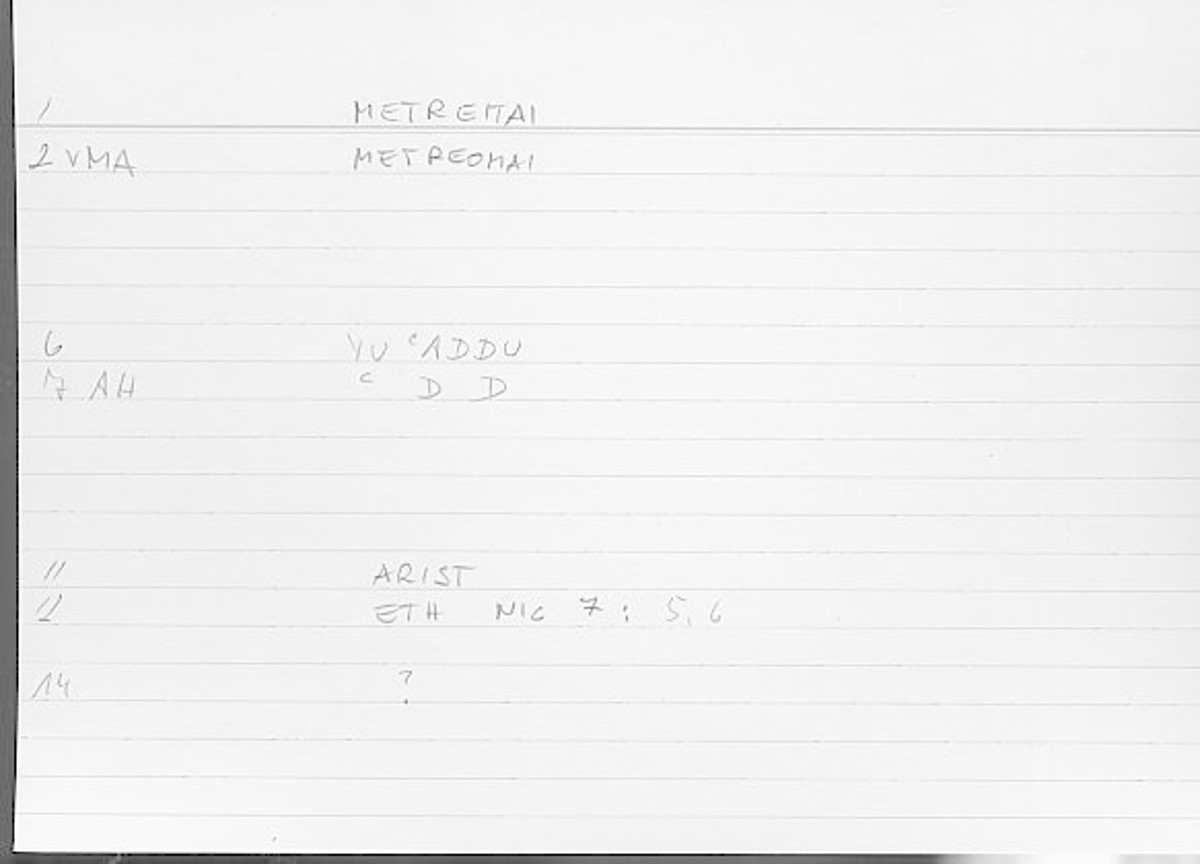 1 METREITAI
2 VMA METREOMAI
6 YU ʿADDU
7 AH ʿ D D
11 ARIST
12 ETH NIC 7 : 5, 6
14 ?